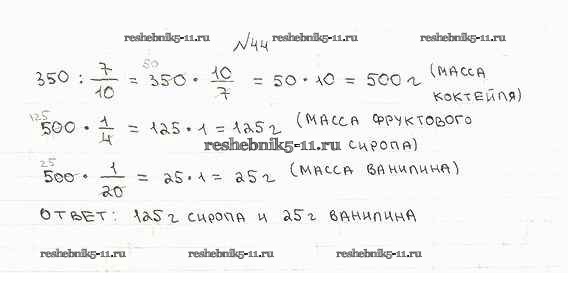 reshebnik5-11.ru №44 reshebnik5-11.ru reshebnik5-11.ru
350 : 7/10 = 350 · 10/7 = 50 · 10 = 500 г (МАССА КОКТЕЙЛЯ)
50
500 · 1/4 = 125 · 1 = 125 г (МАССА ФРУКТОВОГО СИРОПА)
125
reshebnik5-11.ru
500 · 1/20 = 25 · 1 = 25 г (МАССА ВАНИЛИНА)
25
ОТВЕТ: 125 г СИРОПА И 25 г ВАНИЛИНА
reshebnik5-11.ru reshebnik5-11.ru reshebnik5-11.ru